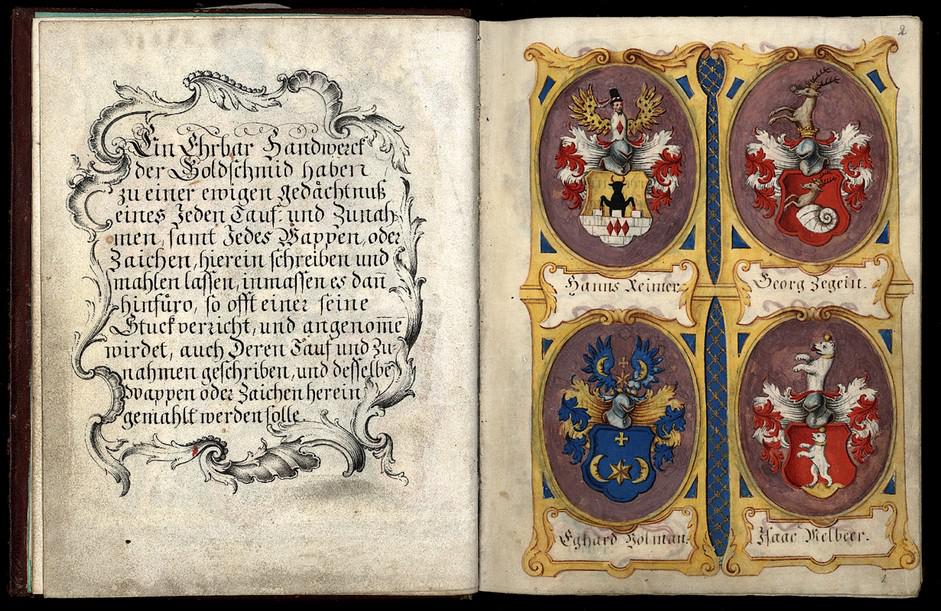 Ein Ehrbar Handwerck
der Goldschmid haben
zu einer ewigen gedächtnuß
eines Jeden Tauf und Zunah-
men, samt Jedes Wappen, oder
Zaichen, hierein schreiben und
mahlen lassen, inmassen es dañ
hinfüro, so offt einer seine
Stuck verricht, und angenom̅e
wirdet, auch Deren Tauf und Zu-
nahmen geschriben, und desselbẽ
Wappen oder Zaichen herein
gemahlt werden solle.
2
Hanns Reimer.
Georg Zegein.
Eghard Bolman.
Isaac Melbeer.